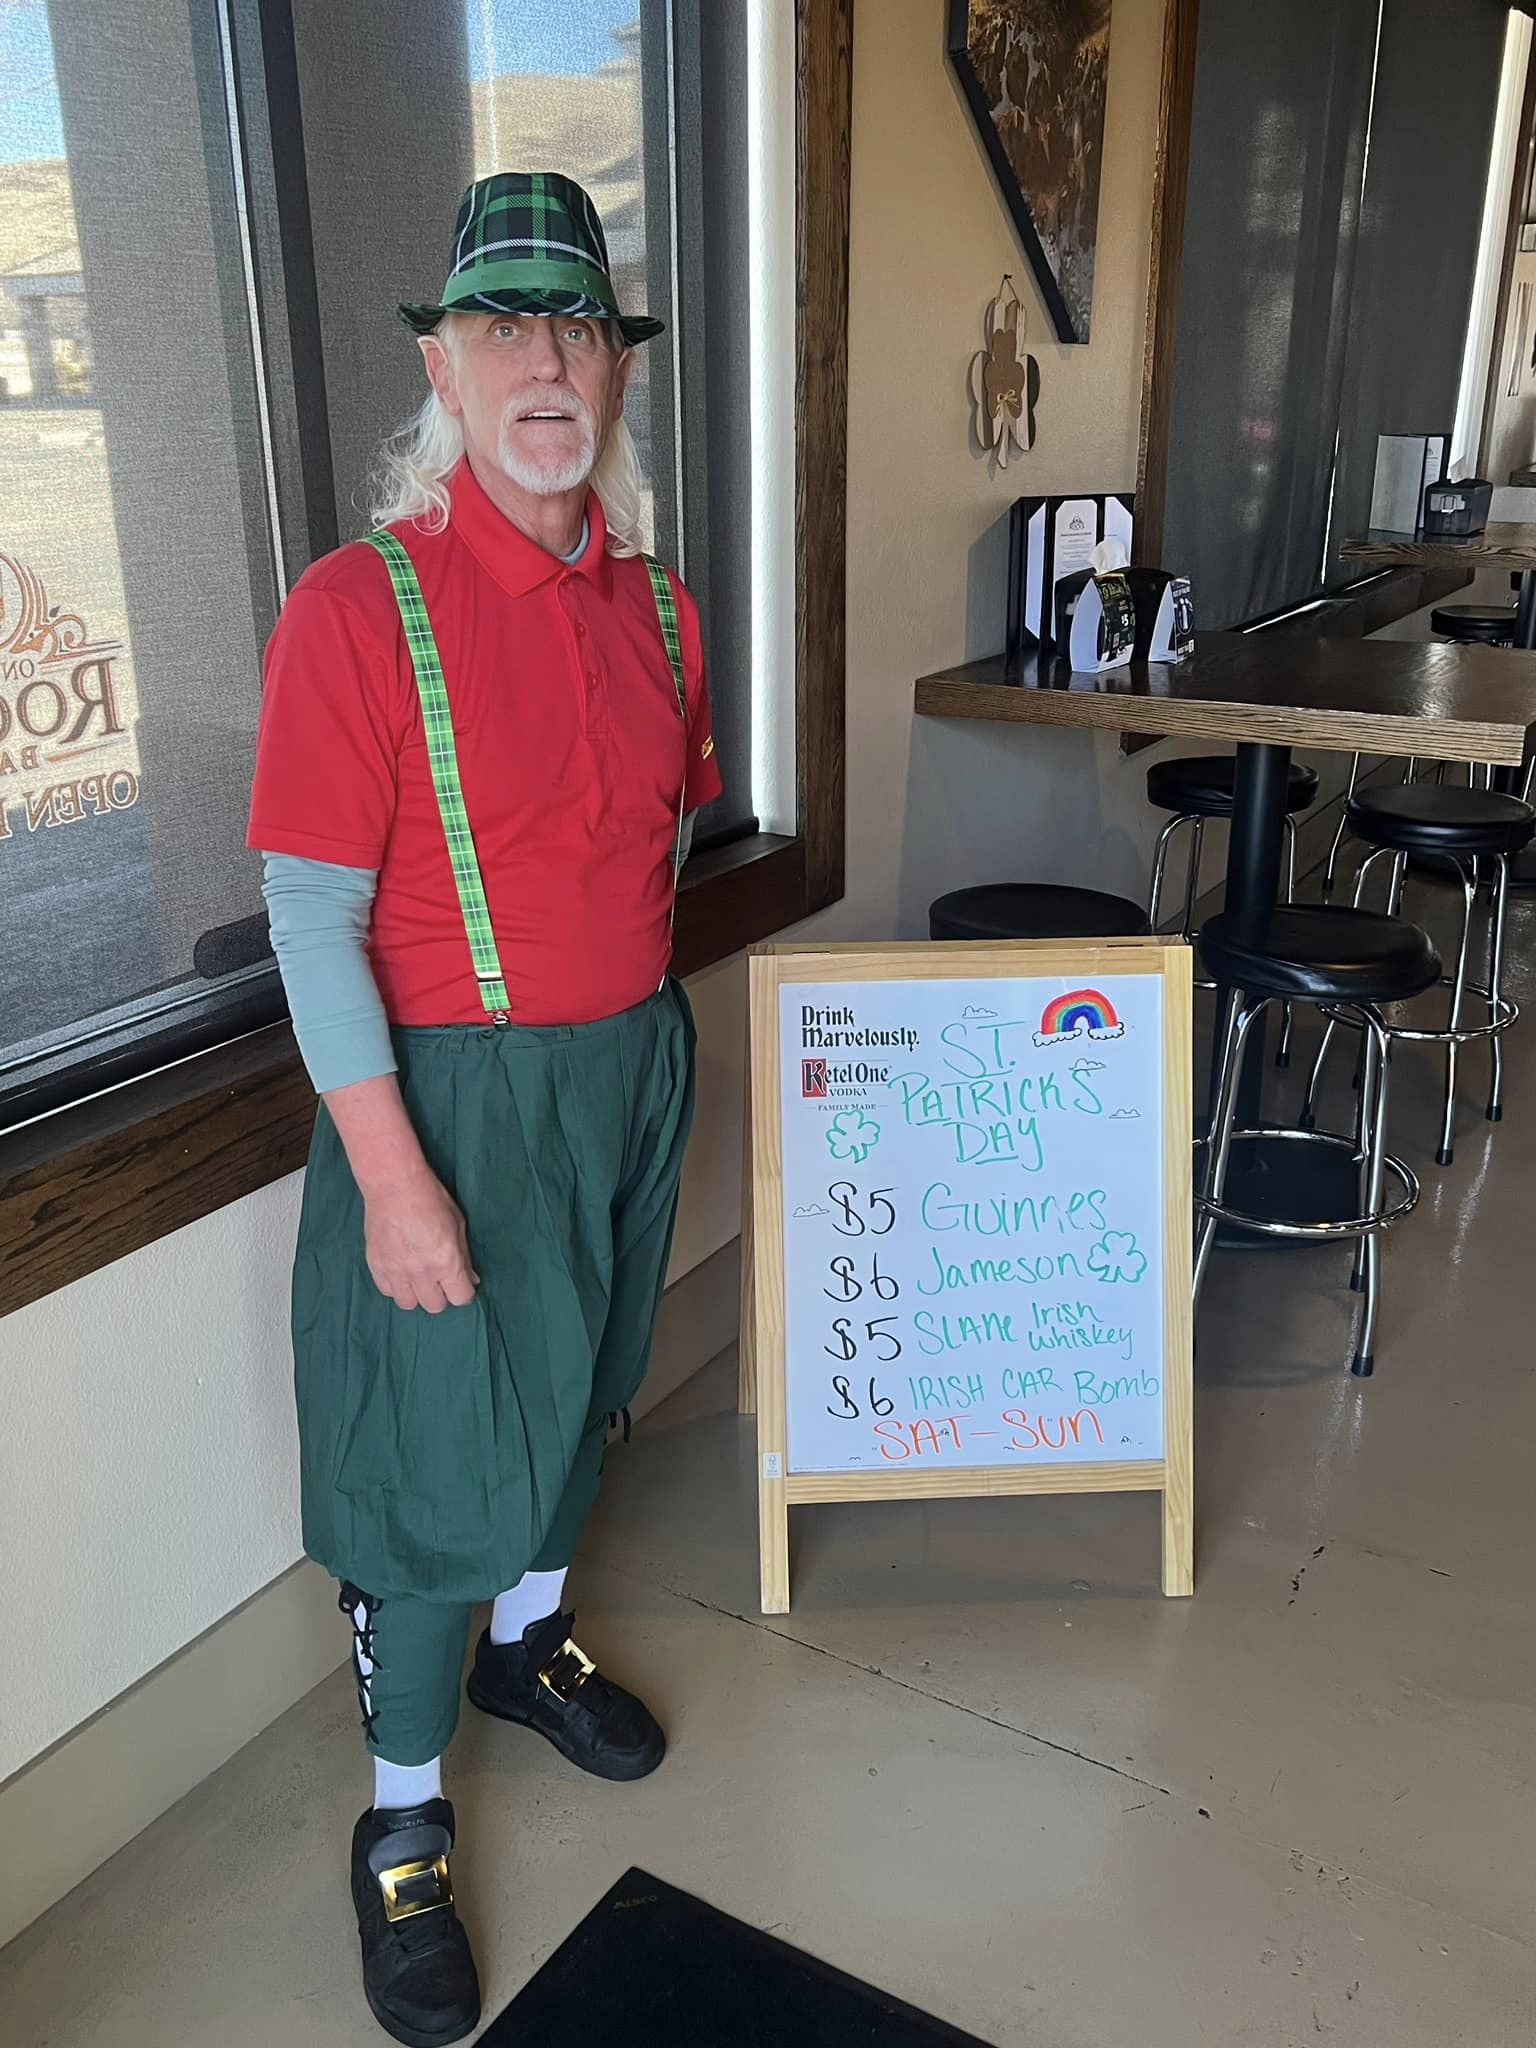 Drink
Marvelously.
Ketel One
VODKA
FAMILY MADE
ST.
PATRICKS
DAY
$5 Guinnes
$6 Jameson
$5 SLANE Irish
Whiskey
$6 IRISH CAR Bomb
SAT-SUN
ON
RO
BA
OPEN
ALSCO
$5